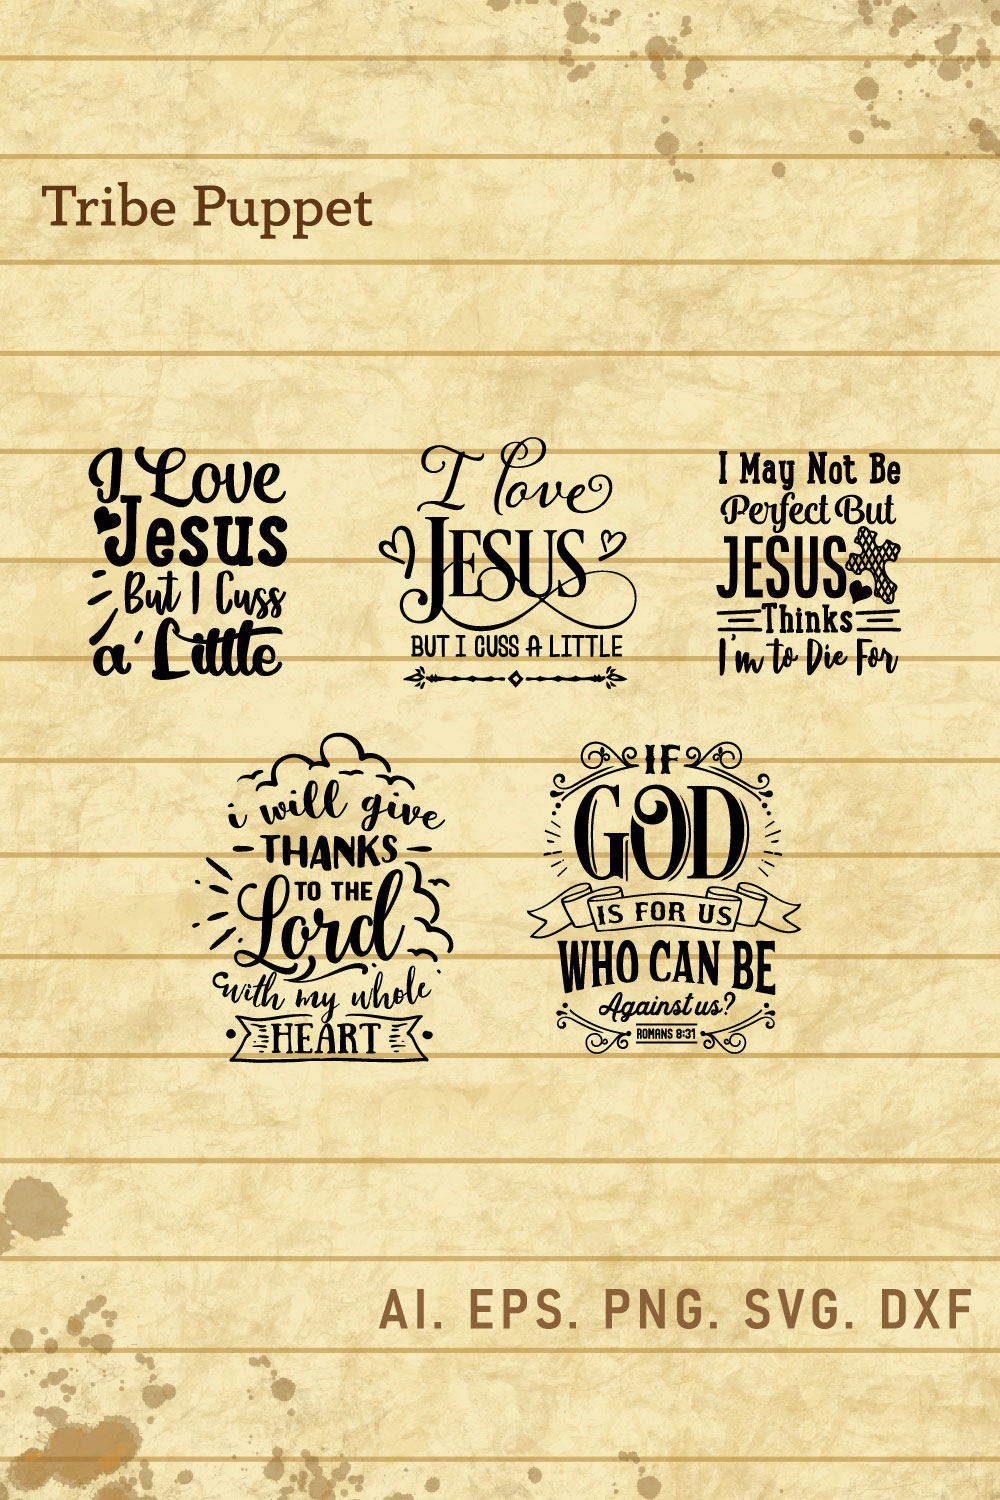 Tribe Puppet
I Love
Jesus
But I Cuss
a Little
I love
JESUS
BUT I CUSS A LITTLE
I May Not Be
Perfect But
JESUS
Thinks
I'm to Die For
i will give
THANKS
TO THE
Lord
with my whole
HEART
IF
GOD
IS FOR US
WHO CAN BE
Against us?
ROMANS 8:31
AI. EPS. PNG. SVG. DXF